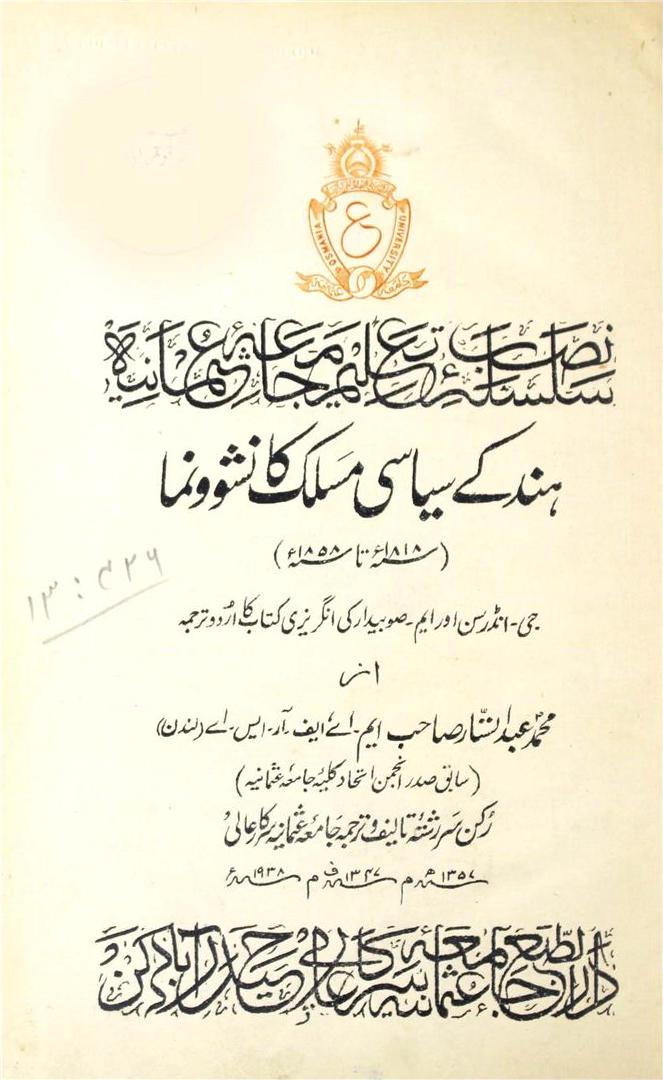 OSMANIA UNIVERSITY
ع
سلسلۂ نصاب تعلیم جامعہ عثمانیہ
ہند کے سیاسی مسلک کا نشوونما
(۱۸۱۸ء تا ۱۸۵۸ء)
جی۔ انڈرسن اور ایم۔ صوبیدار کی انگریزی کتاب کا اُردو ترجمہ
۱۳: ۴۲۶
از
محمد عبدالستّار صاحب ایم۔ اے، ایف۔ آر۔ ایس۔ اے (لندن)
(سابق صدر انجمن اتحاد کلیۂ جامعۂ عثمانیہ)
رُکن سررشتۂ تالیف و ترجمہ جامعۂ عثمانیہ سرکار عالی
۱۳۵۷ھ م ۱۳۴۷ف م ۱۹۳۸ء
دارالطبع جامعہ عثمانیہ سرکار عالی حیدرآباد دکن